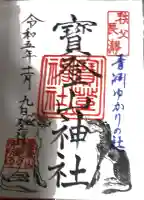 秩父
長瀞
青淵ゆかりの社
寳登山神社
令和五年十一月九日